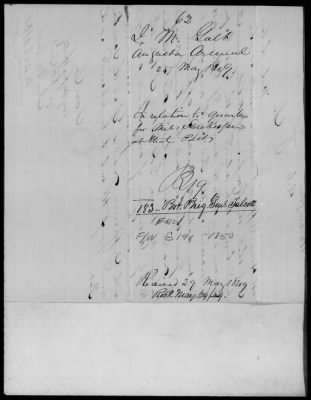 62
J. M. Galt
Augusta Arsenal
25 May, 1849,
In relation to quarters
for Mil: Storekeeper
at that Post,
183 - Bvt. Brig. Genl. Talcott
1 Encl
F/W G 190 - 1850
Received 29 May 1849
Recd May 29/49.